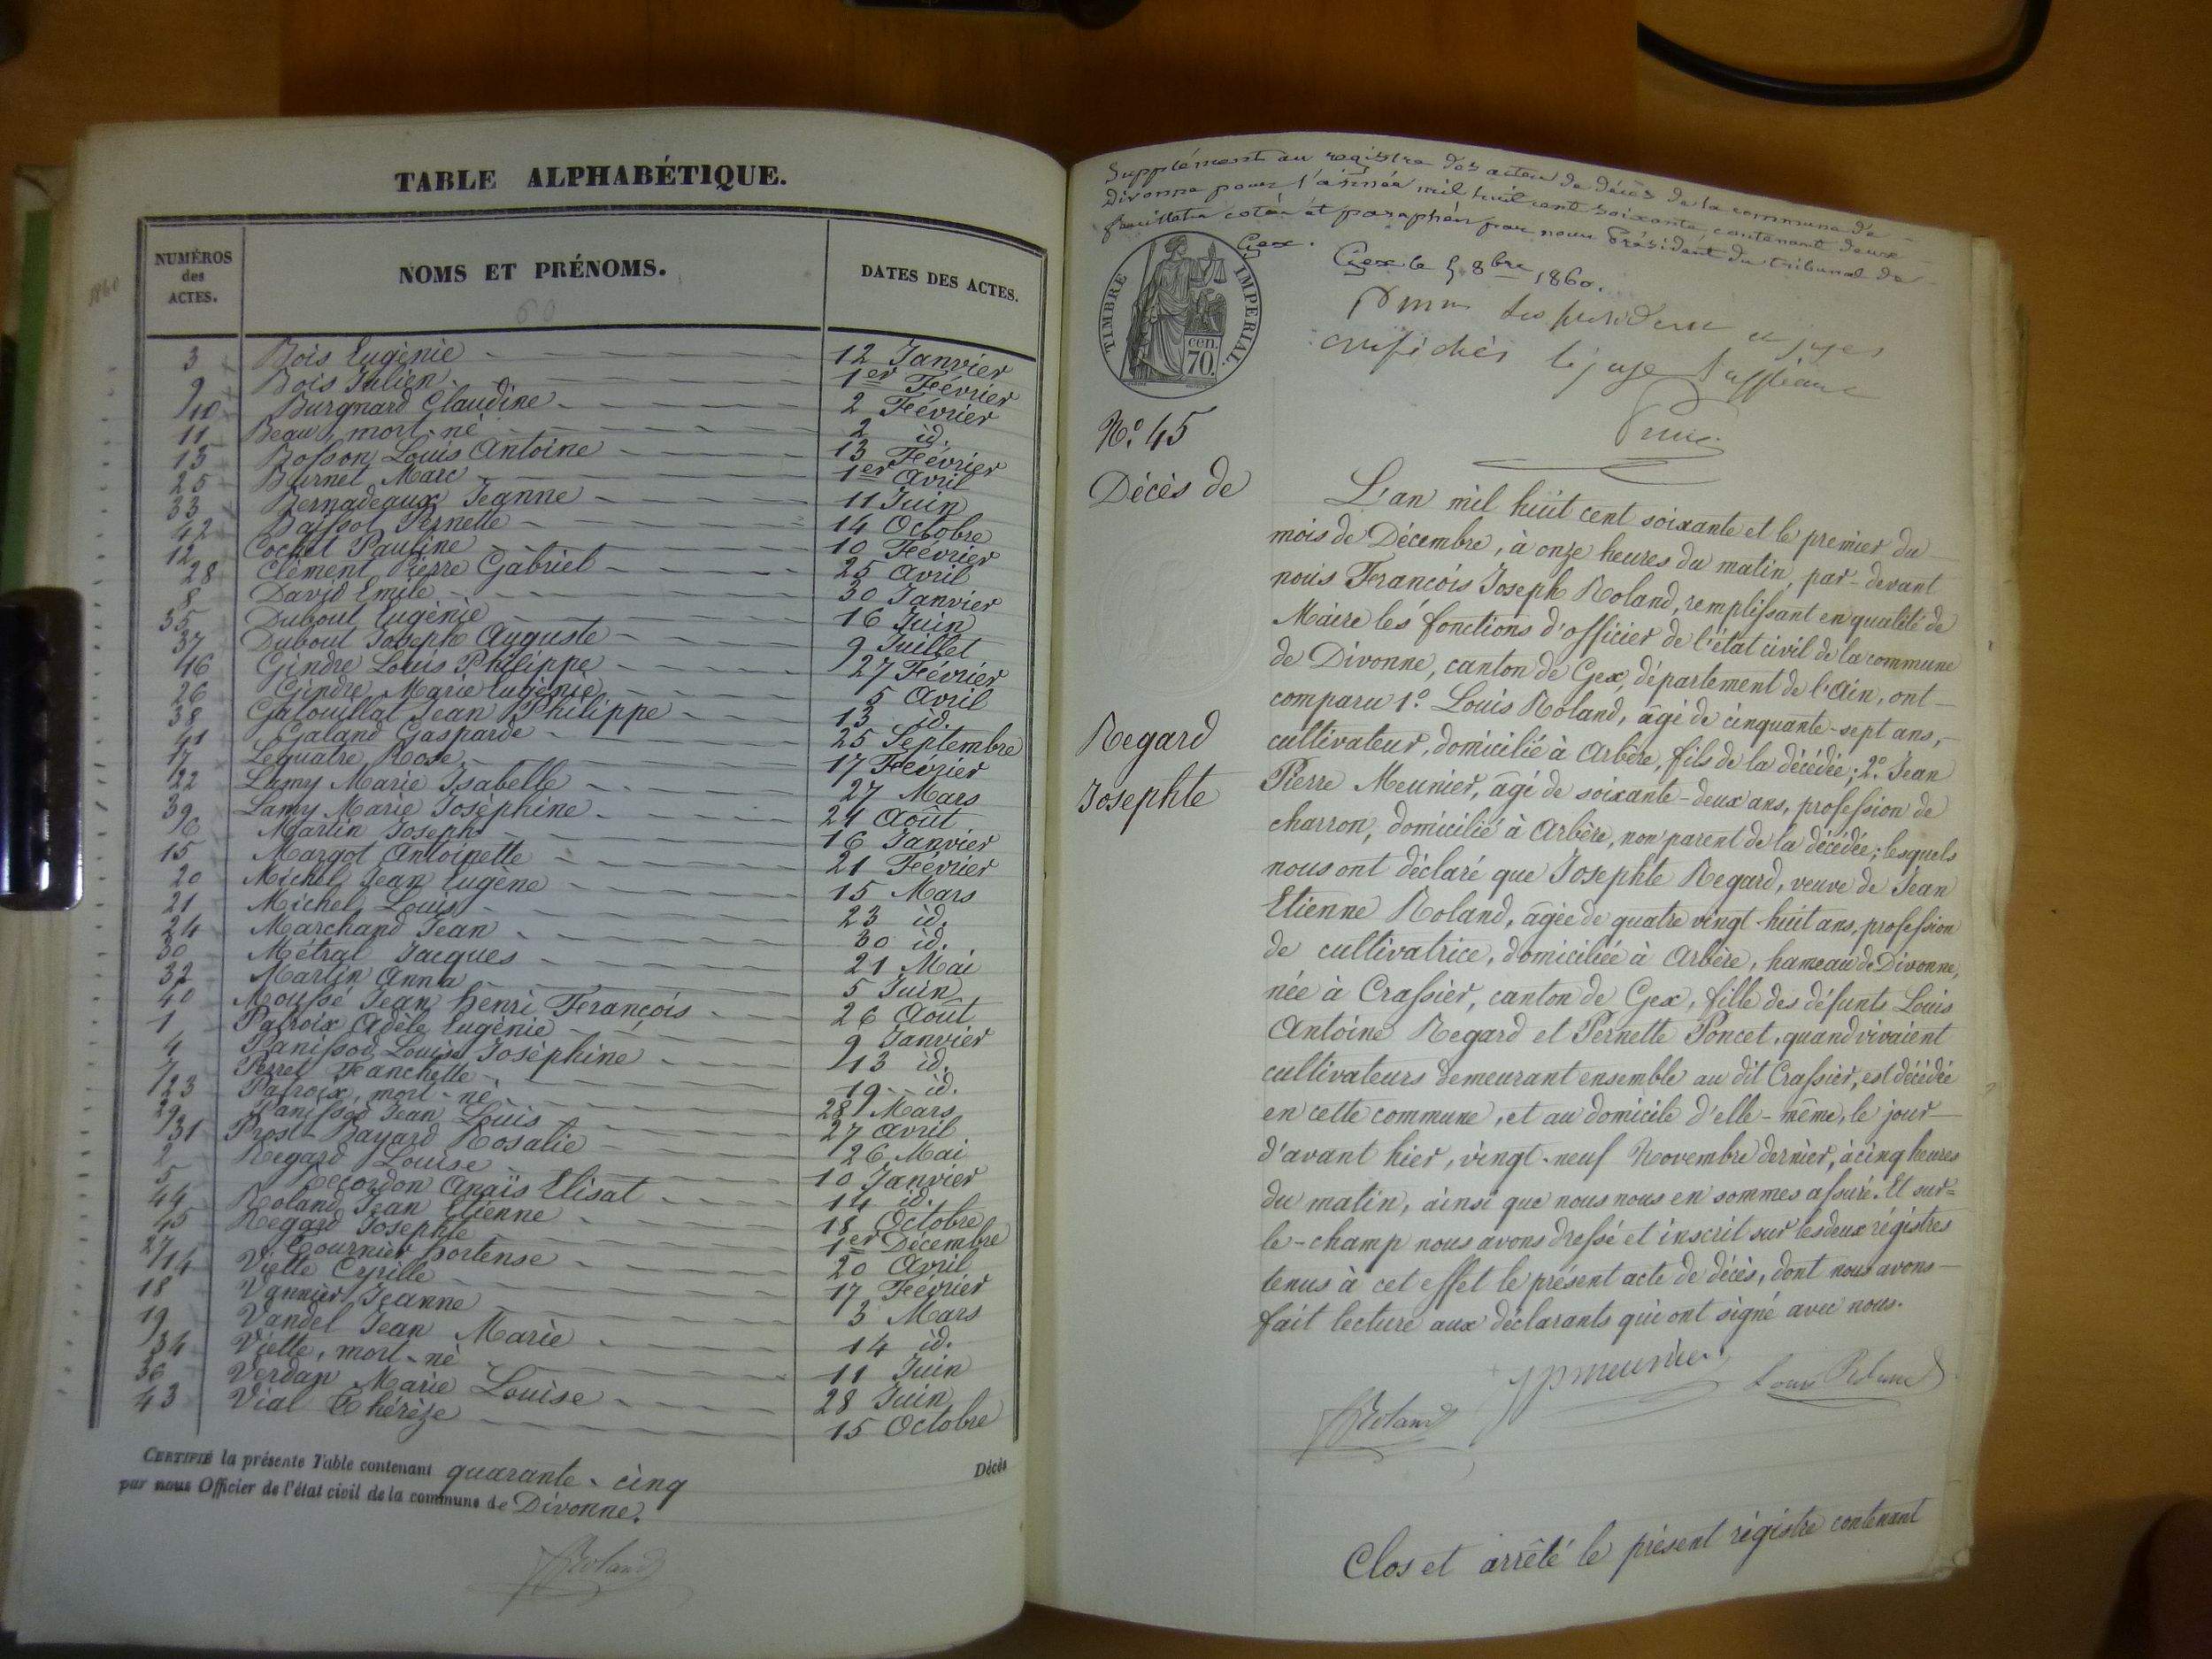 TABLE ALPHABÉTIQUE.
NUMÉROS des ACTES.
NOMS ET PRÉNOMS.
DATES DES ACTES.
1860
60
3 Bois Eugénie 12 Janvier
9 Bois Julien 1er Février
10 Burgnard Claudine 2 Février
11 Beau, mort-né 2 id.
13 Bosson Louis Antoine 13 Février
25 Burnet Marc 1er Avril
33 Bernadeaux Jeanne 11 Juin
42 Baissot Pernette 14 Octobre
12 Cochet Pauline 10 Février
28 Clément Pierre Gabriel 25 Avril
8 David Emile 30 Janvier
35 Dubout Eugénie 16 Juin
37 Dubout Joseph Auguste 9 Juillet
16 Gindre Louis Philippe 27 Février
26 Gindre Marie Eugénie 5 Avril
38 Gatouillat Jean Philippe 13 id.
41 Galand Gasparde 25 Septembre
17 Lequatre Rose 17 Février
22 Lamy Marie Isabelle 27 Mars
39 Lamy Marie Joséphine 24 Août
6 Martin Joseph 16 Janvier
15 Margot Antoinette 21 Février
20 Michel Jean Eugène 15 Mars
21 Michel Louis 23 id.
24 Marchand Jean 30 id.
30 Métral Jacques 21 Mai
32 Martin Anna 5 Juin
40 Moussé Jean henri François 26 Août
1 Patroix Adèle Eugénie 9 Janvier
4 Panissod Louise Joséphine 13 id.
7 Perret Franchette 19 id.
23 Patroix, mort-né 28 Mars
29 Panissod Jean Louis 27 Avril
31 Prost-Bayard Rosalie 26 Mai
2 Regard Louise 10 Janvier
5 Recordon Anaïs Elisat 14 id.
44 Roland Jean Etienne 18 Octobre
45 Regard Josephte 1er Décembre
27 Tournier hortense 20 Avril
14 Viette Cyrille 17 Février
18 Vannier Jeanne 3 Mars
19 Vandel Jean Marie 14 id.
34 Viette, mort-né 11 Juin
36 Verdan Marie Louise 28 Juin
43 Vial Thérèze 15 Octobre
CERTIFIÉ la présente Table contenant quarante-cinq Décès
par nous Officier de l'état civil de la commune de Divonne.
Roland
Supplément au registre des actes de décès de la commune de
Divonne pour l'année mil huit cent soixante, contenant deux
feuillets cotés et paraphés par nous Président du tribunal de
Gex.
Gex le 5 8bre 1860.
TIMBRE IMPERIAL.
cen.
70.
Pour les président et juges
empêchés le juge suppléant
N.º 45
Décès de
Regard
Josephte
L'an mil huit cent soixante et le premier du
mois de Décembre, à onze heures du matin, par-devant
nous François Joseph Roland, remplissant en qualité de
Maire les fonctions d'officier de l'état civil de la commune
de Divonne, canton de Gex, département de l'Ain, ont
comparu 1.º Louis Roland, âgé de cinquante-sept ans,
cultivateur, domicilié à Arbère, fils de la décédée; 2.º Jean
Pierre Meunier, âgé de soixante-deux ans, profession de
charron, domicilié à Arbère, non parent de la décédée; lesquels
nous ont déclaré que Josephte Regard, veuve de Jean
Etienne Roland, âgée de quatre vingt-huit ans, profession
de cultivatrice, domiciliée à Arbère, hameau de Divonne,
née à Crassier, canton de Gex, fille des défunts Louis
Antoine Regard et Pernette Poncet, quand vivaient
cultivateurs demeurant ensemble au dit Crassier, est décédée
en cette commune, et au domicile d'elle-même, le jour
d'avant hier, vingt-neuf Novembre dernier, à cinq heures
du matin, ainsi que nous nous en sommes assuré. Et sur-
le-champ nous avons dressé et inscrit sur les deux régistres
tenus à cet effet le présent acte de décès, dont nous avons
fait lecture aux déclarants qui ont signé avec nous.
JP meunier
Louis Roland
Roland
Clos et arrêté le présent régistre contenant